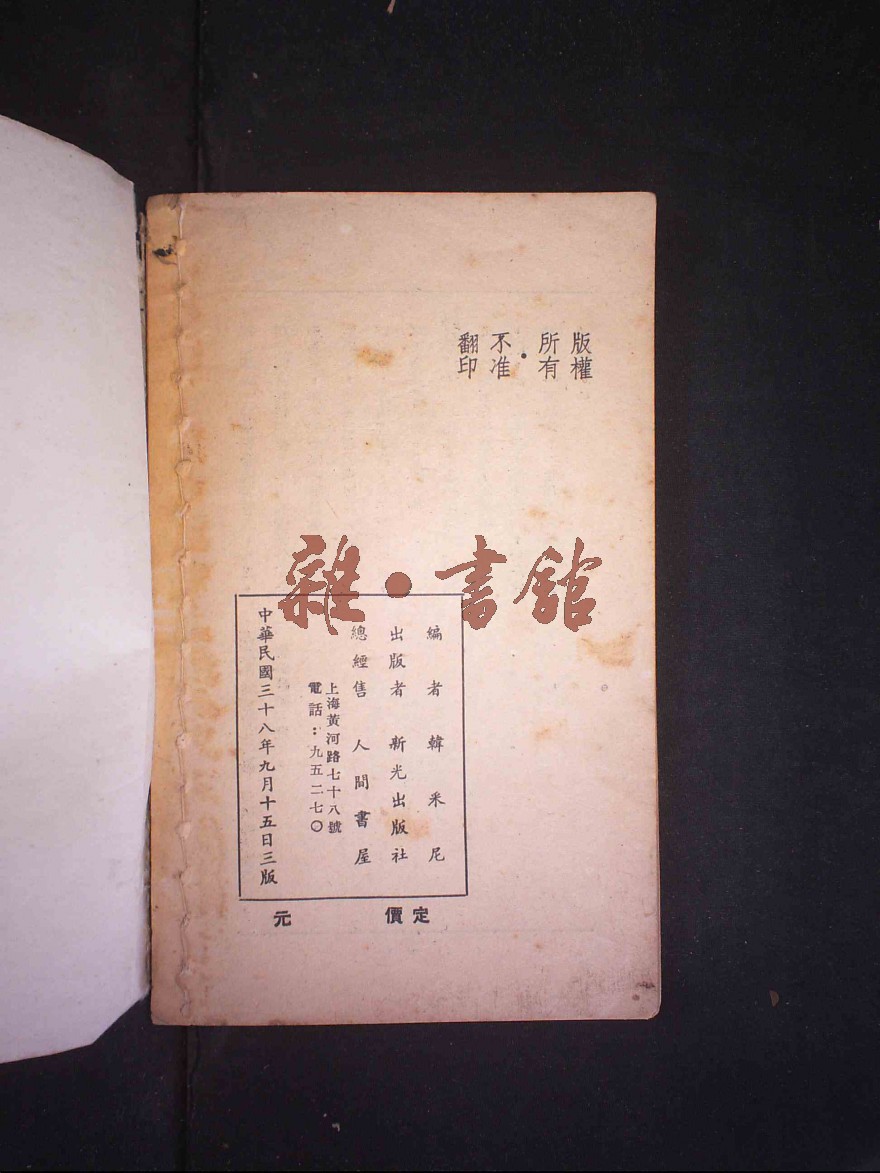 版權
所有
•
不准
翻印
雜•書館
編者 韓釆尼
出版者 新光出版社
總經售 人間書屋
上海黃河路七十八號
電話：九五二七〇
中華民國三十八年九月十五日三版
定價 元